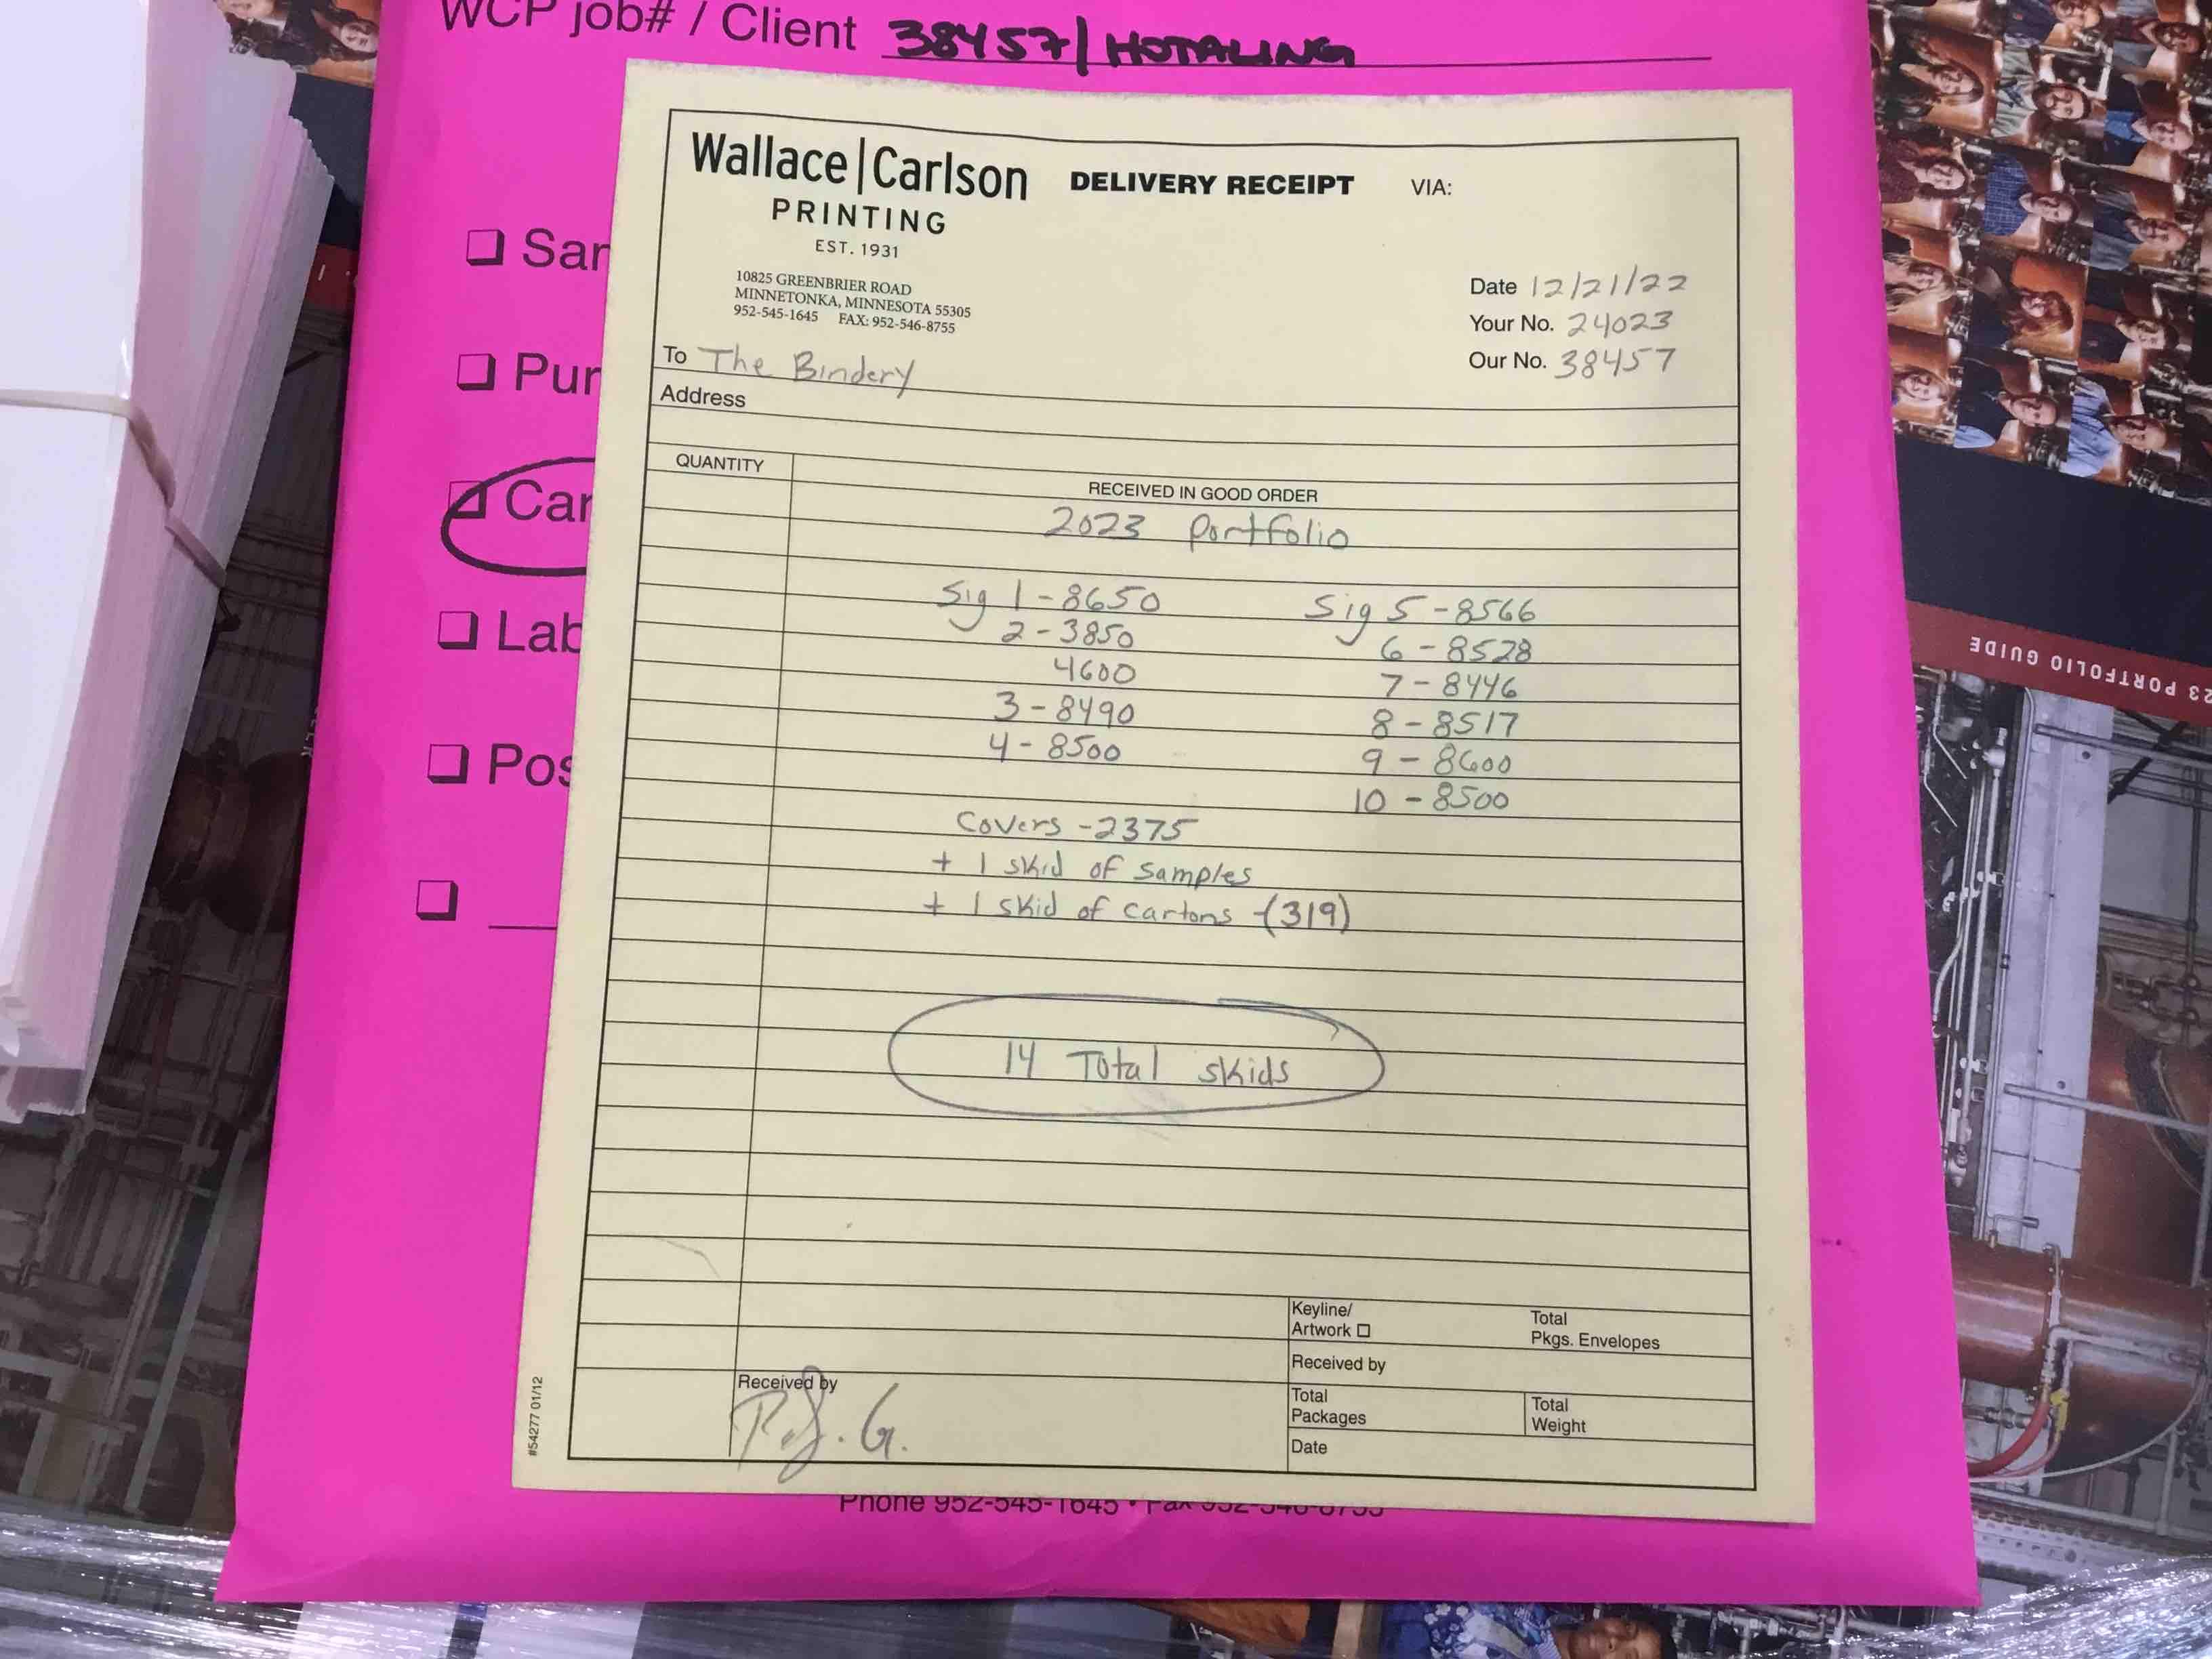 WCP job# / Client 38457 | HOTALING
Wallace|Carlson
PRINTING
EST. 1931
10825 GREENBRIER ROAD
MINNETONKA, MINNESOTA 55305
952-545-1645 FAX: 952-546-8755
DELIVERY RECEIPT VIA:
Date 12/21/22
Your No. 24023
Our No. 38457
To The Bindery
Address
QUANTITY
RECEIVED IN GOOD ORDER
2023 Portfolio
Sig 1 - 8650
2 - 3850
4600
3 - 8490
4 - 8500
Sig 5 - 8566
6 - 8528
7 - 8446
8 - 8517
9 - 8600
10 - 8500
Covers - 2375
+ 1 skid of samples
+ 1 skid of cartons - (319)
14 Total skids
Keyline/
Artwork
Total
Pkgs. Envelopes
Received by
Total
Packages
Total
Weight
Date
Received by
#54277 01/12
Sar
Pur
Car
Lab
Pos
Phone 952-545-1645 • Fax 952-546-8755
23 PORTFOLIO GUIDE